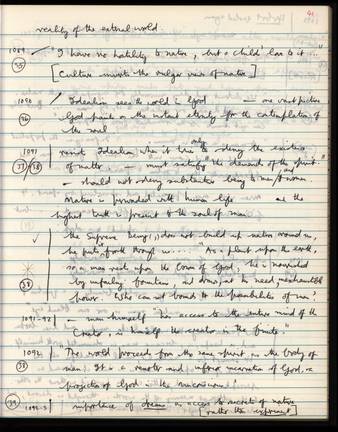 reality of the external world
1089 "I have no hostility to nature, but a child's love to it ..."
35 [Culture inverts the vulgar views of nature]
1090 Idealism sees the world in God — one vast picture
36 God paints on the instant eternity for the contemplation of
the soul
1091 Idealism when it only denying the existence
37 38 of matter. must satisfy "the demands of the spirit"
— should not denying substantive being to men & women
Nature is pervaded with human life the
highest truth is present to the soul of man.
the Supreme Being, does not build up nature around us,
he puts it forth through us ..... "As a plant upon the earth,
so a man rests upon the bosom of God, he is nourished
38 by unfailing fountains, and draws, at his need, inexhaustible
power. Who can set bounds to the possibilities of man'
1091-92 — man himself has access to the entire mind of the
'Creator, is himself the creator in the finite.'
1092 — The world proceeds from the same spirit as the body of
38 man. It is a remoter and inferior incarnation of God, a
projection of God in the unconscious
39 1092-3 importance of dream as access to secrets of nature
[rather than experiment]